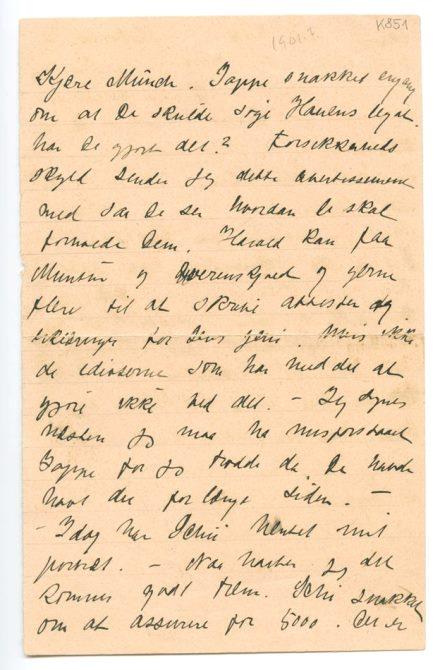 K851
1901?
Kjære Munch. Jappe snakket engang
om at De skulde søge Hauens legat.
har De gjort det? Forsikkerheds
skyld sender jeg dette avertissement
med saa De ser hvordan De skal
forholde Dem. Harald kan faa
og gjerne
flere til at skrive attester og
for Deres geni. Hvis ikke
de idioterne som har med det at
gjøre ikke ved det. – Jeg synes
næsten jeg maa ha misforstaaet
Jappe for jeg trodde da De havde
havt det for længe siden. –
– Idag har Schou hentet mit
portræt. – Nu haaber jeg det
kommer godt frem. Schou snakket
om at assurere for 5000. Det er